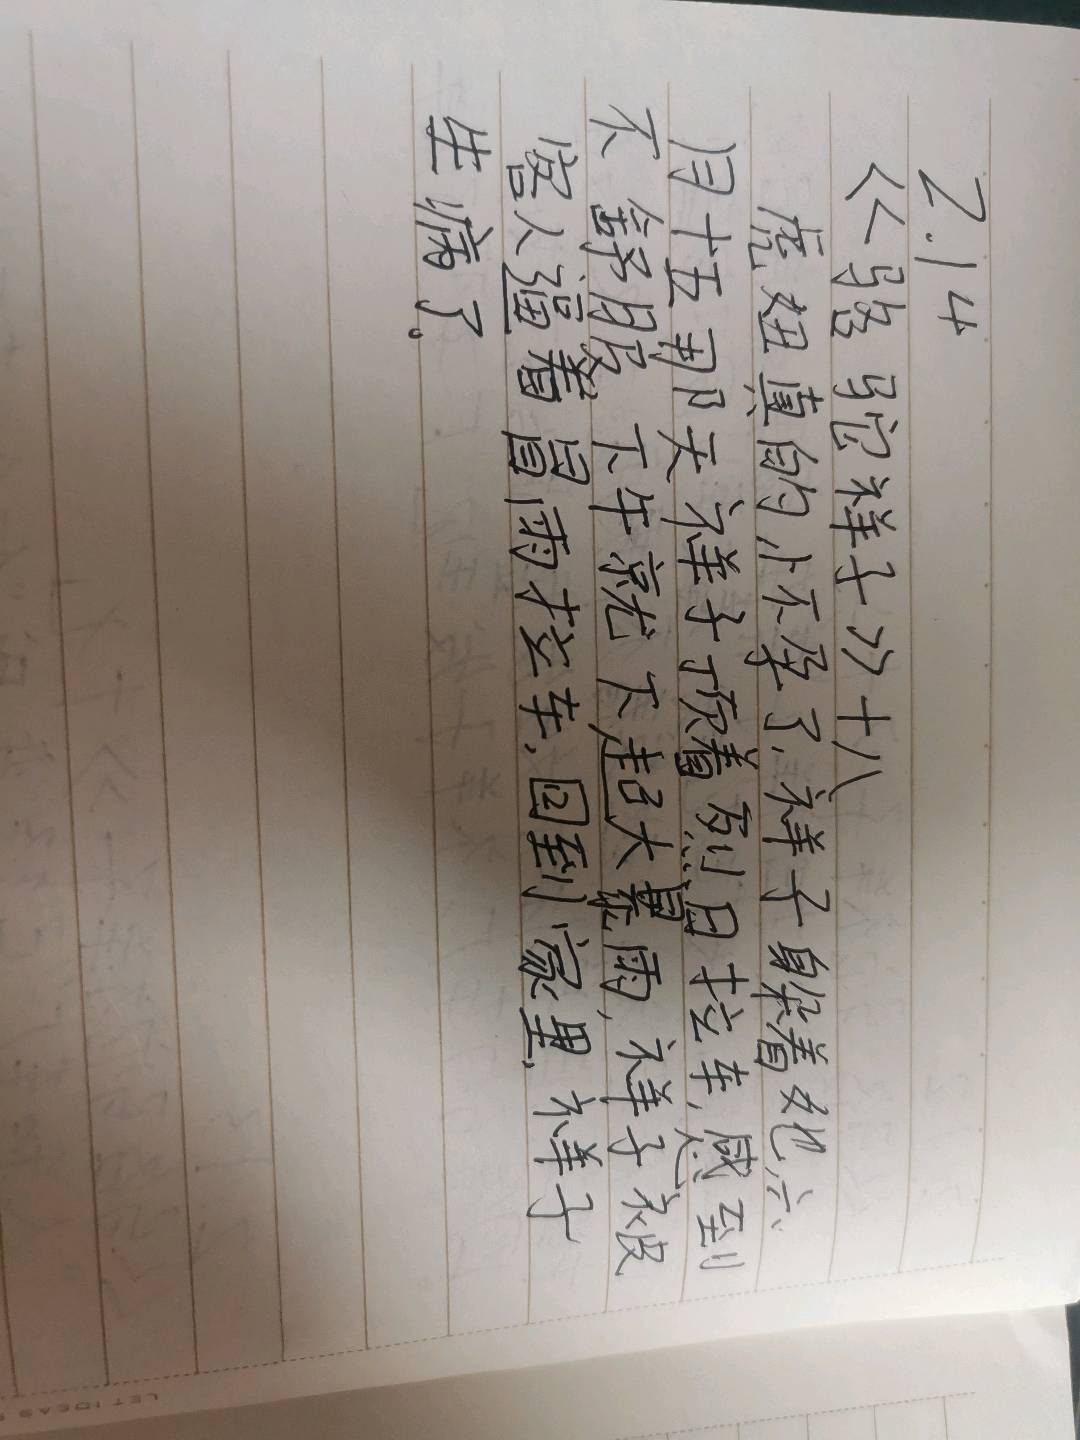 2.14
《骆驼祥子》十八
虎妞真的小不孕了,祥子躲着她六
月十五那天祥子顶着烈日拉车,感到
不舒服,下午就下起大暴雨,祥子被
客人强着冒雨拉车,回到家里,祥子
生病了。